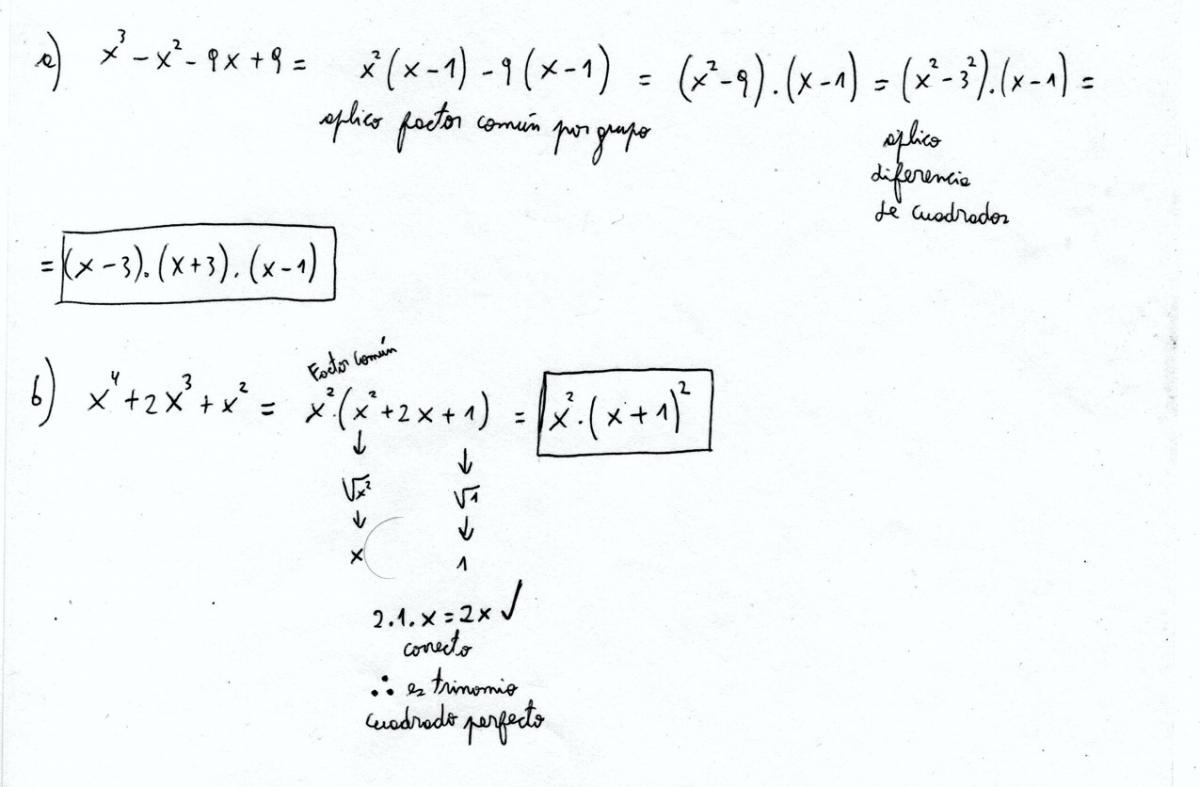 a) x³ - x² - 9x + 9 = x²(x-1) - 9(x-1) = (x²-9).(x-1) = (x²-3²).(x-1) =
aplico factor común por grupo
aplico
diferencia
de cuadrados
= (x-3).(x+3).(x-1)
Factor común
b) x⁴ + 2x³ + x² = x².(x² + 2x + 1) = x².(x+1)²
↓ ↓
√x² √1
↓ ↓
x 1
2.1.x = 2x ✓
correcto
∴ es trinomio
cuadrado perfecto